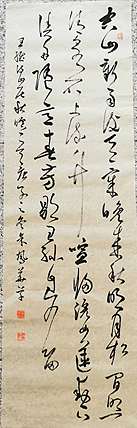 空山新雨後天氣晚來秋明月松間照
清泉石上流竹喧歸浣女蓮動下
漁舟隨意春芳歇王孫自可留
王維山居秋暝